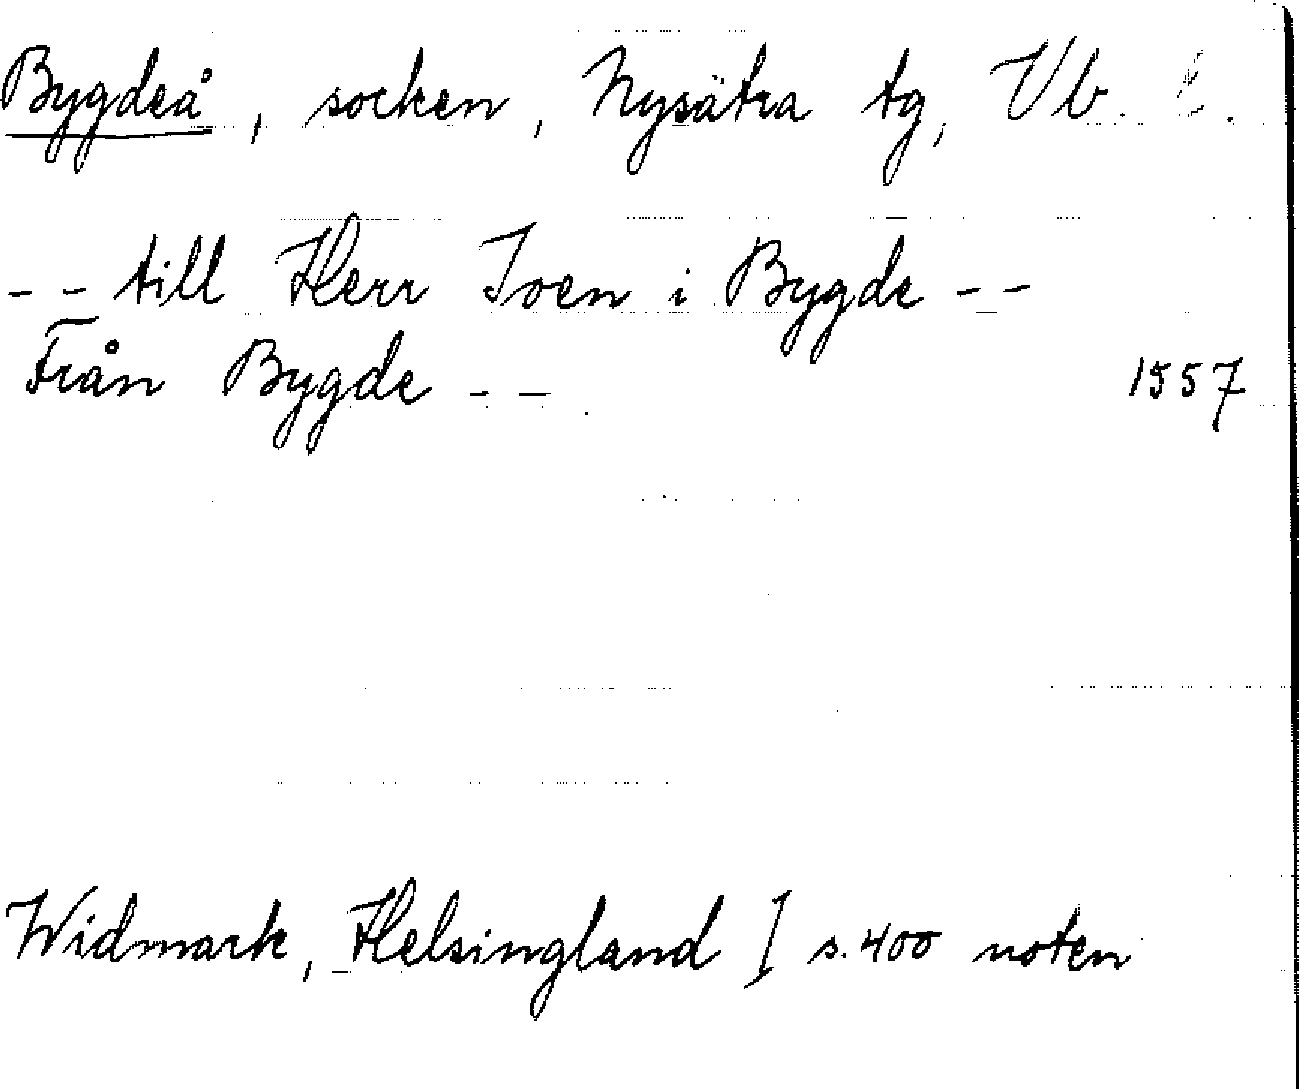 Bygdeå, socken, Nysätra tg, Vb. l.
-- till Herr Joen i Bygde --
Från Bygde --
1557
Widmark, Helsingland I s. 400 noten